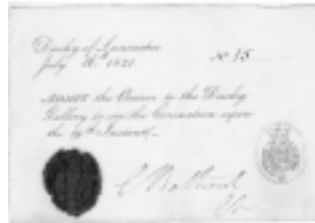 Duchy of Lancaster
July 16th 1821. No 15
ADMIT the Owner to the Duchy
Gallery to see the Coronation upon
the 19th Instant